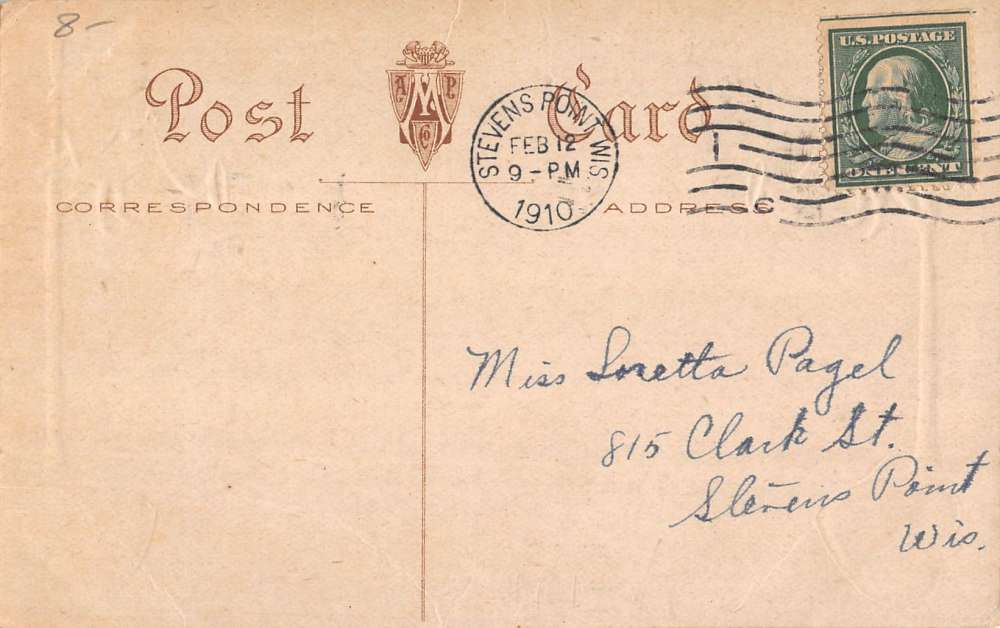 8-
Post Card
A M P
Co
U.S. POSTAGE
ONE CENT
STEVENS POINT, WIS
FEB 12
9 - PM
1910
CORRESPONDENCE
ADDRESS
Miss Loretta Pagel
815 Clark St.
Stevens Point
Wis.